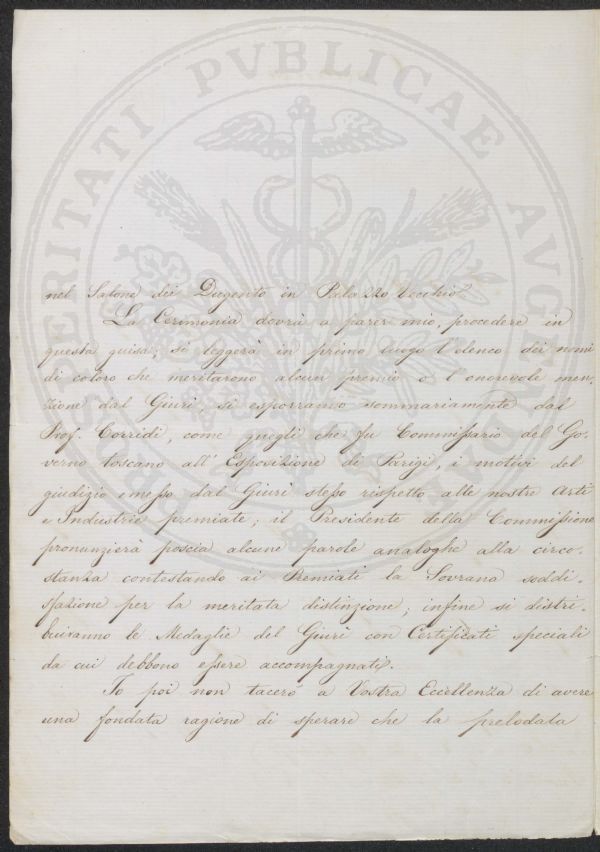 PROSPERITATI PVBLICAE AVGENDAE
nel Salone dei Dugento in Palazzo Vecchio.
La Cerimonia dovrà a parer mio, procedere in
questa guisa; si leggerà in primo luogo l'elenco dei nomi
di coloro che meritarono alcun premio o l'onorevole men-
zione dal Giurì, si esporranno sommariamente dal
Prof. Corridi, come quegli che fu Commissario del Go-
verno toscano all'Esposizione di Parigi, i motivi del
giudizio emesso dal Giurì stesso rispetto alle nostre Arti
e Industrie premiate; il Presidente della Commissione
pronunzierà poscia alcune parole analoghe alla circo-
stanza contestando ai Premiati la Sovrana soddi-
sfazione per la meritata distinzione; infine si distri-
buiranno le Medaglie del Giurì con Certificati speciali
da cui debbono essere accompagnati.
Io poi non tacerò a Vostra Eccellenza di avere
una fondata ragione di sperare che la prelodata